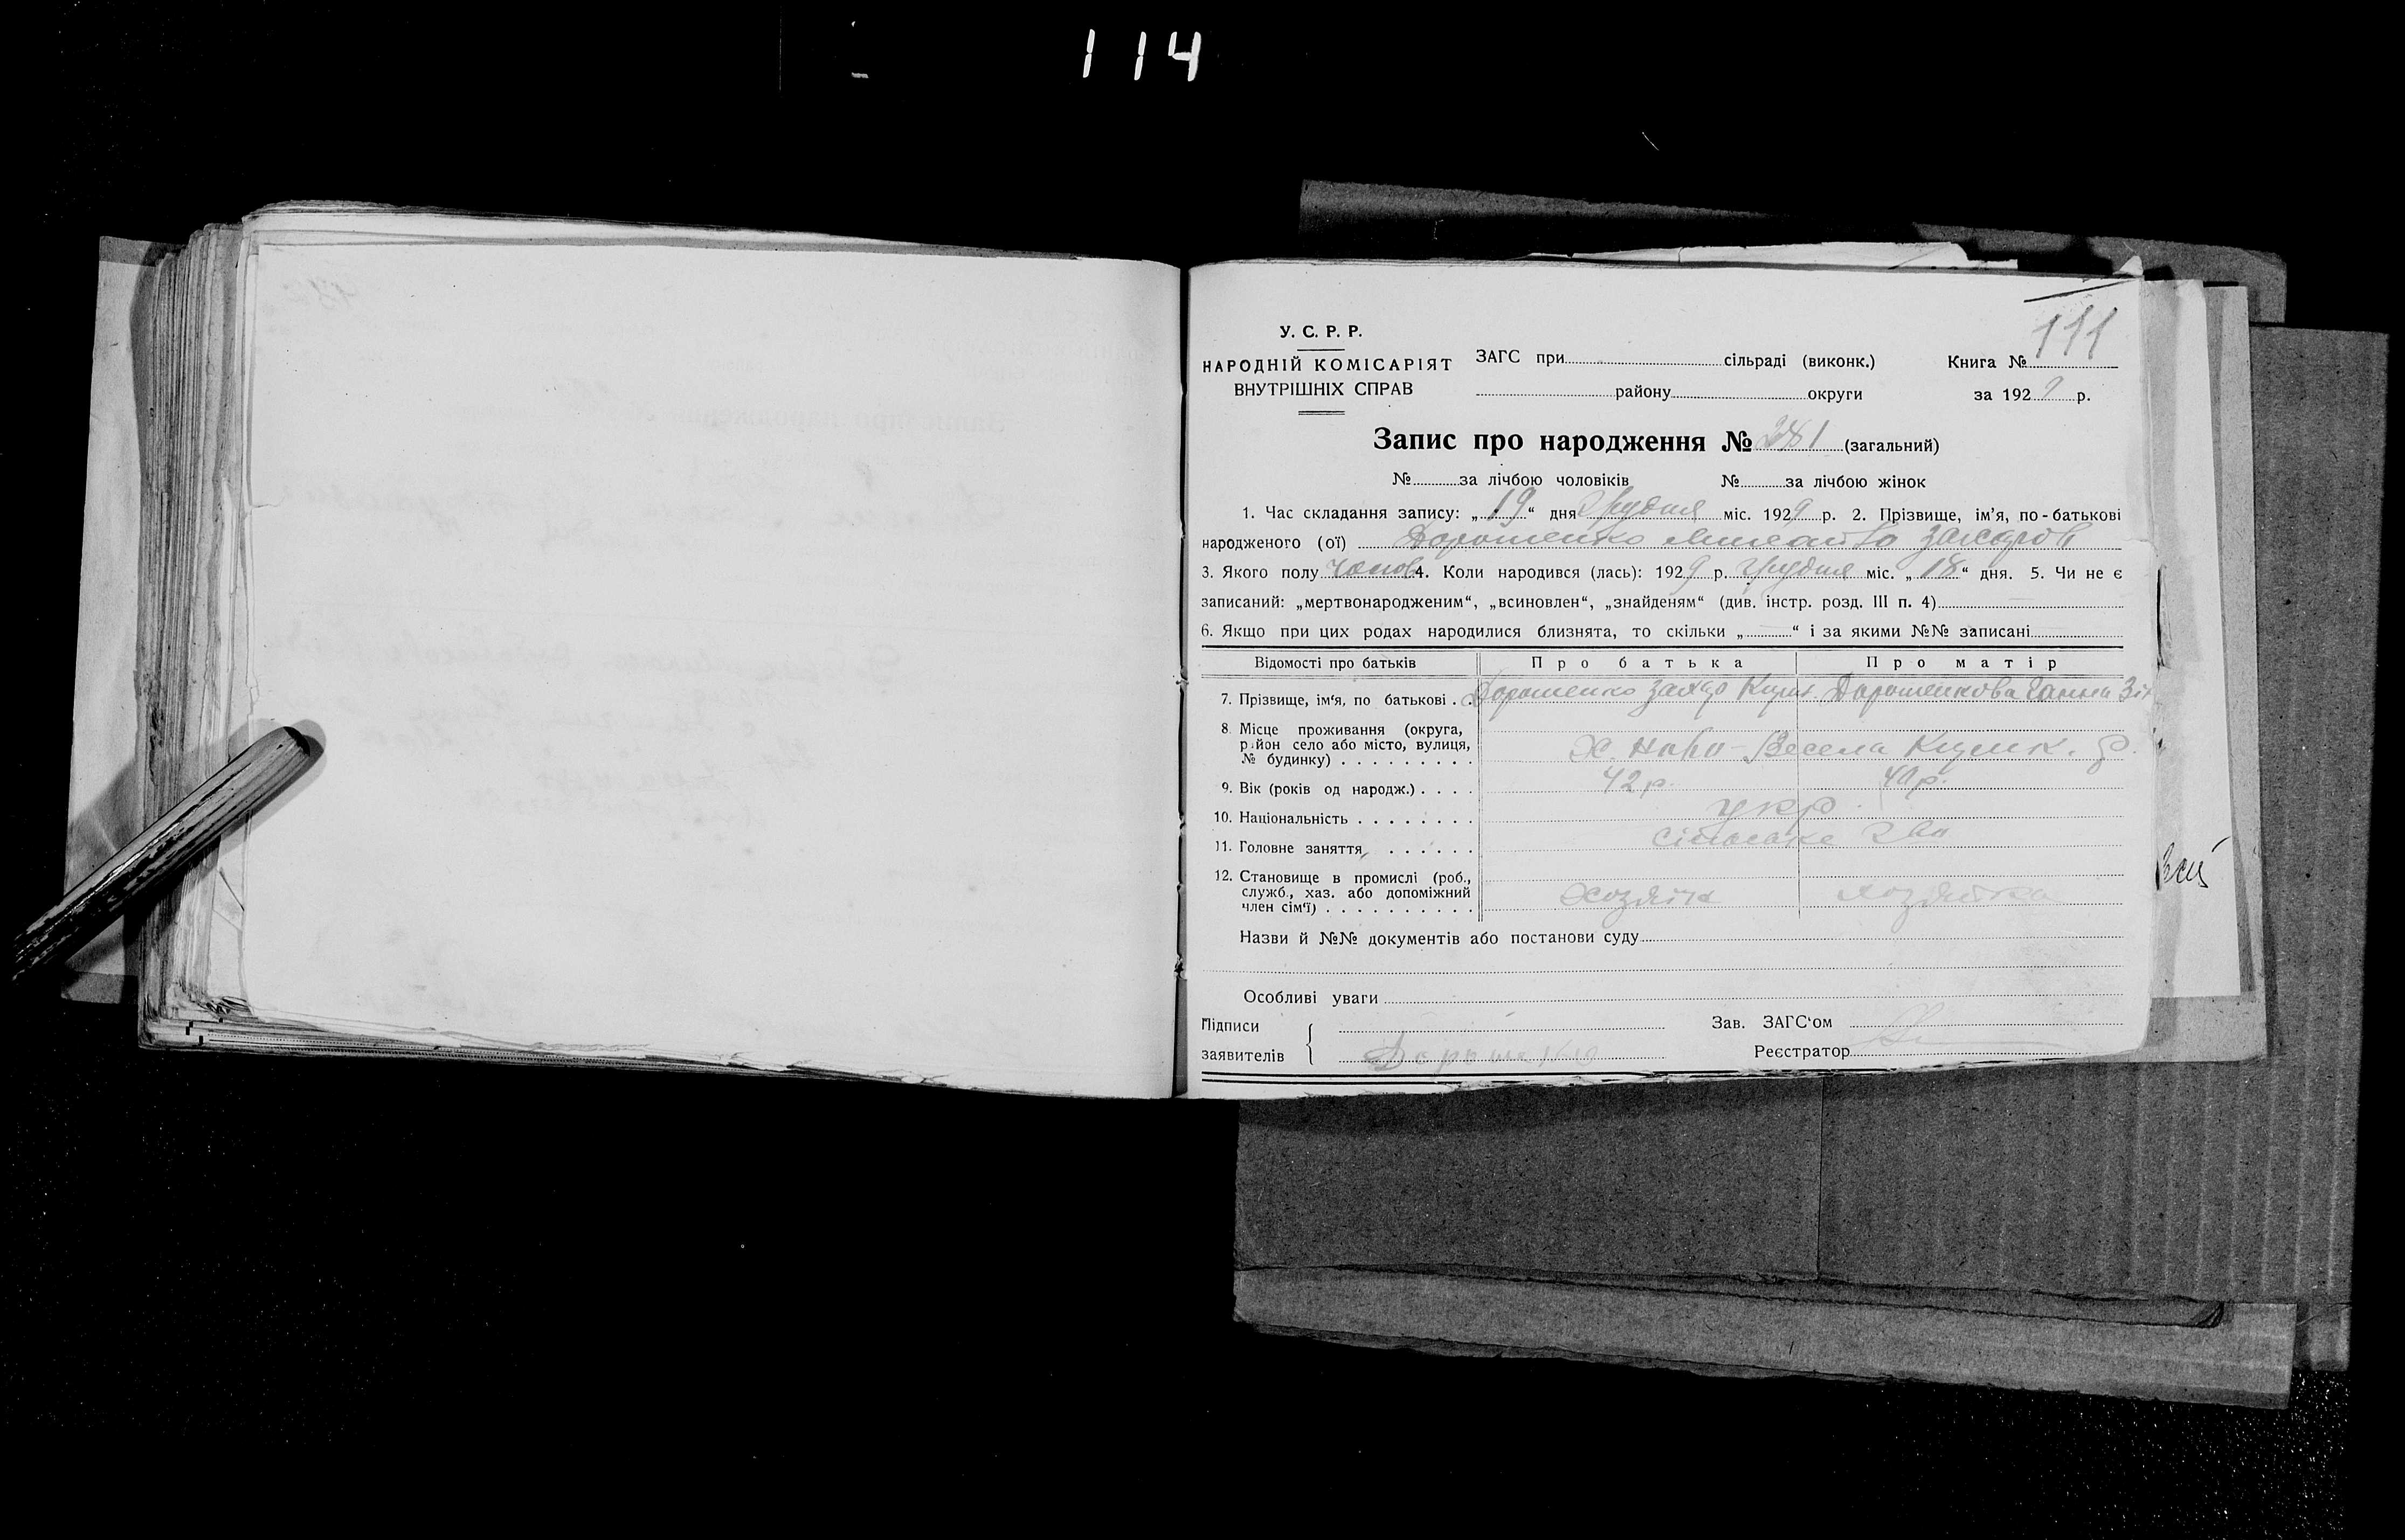 114
111
У. С. Р. Р.
НАРОДНІЙ КОМІСАРІЯТ
ВНУТРІШНІХ СПРАВ
ЗАГС при сільраді (виконк.)
Книга №
району округи
за 1929 р.
Запис про народження № 381 (загальний)
№ за лічбою чоловіків № за лічбою жінок
1. Час складання запису: „19“ дня Грудня міс. 1929 р. 2. Прізвище, ім'я, по-батькові
народженого (ої) Дорошенко Михайло Захаров
3. Якого полу чолов 4. Коли народився (лась): 1929 р. Грудня міс. „18“ дня. 5. Чи не є
записаний: „мертвонародженим“, „всиновлен“, „знайденям“ (див. інстр. розд. III п. 4)
6. Якщо при цих родах народилися близнята, то скільки „ “ і за якими №№ записані
Відомості про батьків Про батька Про матір
7. Прізвище, ім'я, по батькові . . Дорошенко Дорошенкова Ганна
8. Місце проживання (округа,
район село або місто, вулиця,
№ будинку) . . . . . . . . . Х. Ново-Весела
9. Вік (років од народж.) . . . . 42 р. 40 р.
10. Національність . . . . . . . . укр.
11. Головне заняття . . . . . .
12. Становище в промислі (роб.,
служб., хаз. або допоміжний
член сім'ї) . . . . . . . . . . Хозяїн хозяйка
Назви й №№ документів або постанови суду
Особливі уваги
Підписи
заявителів
Зав. ЗАГС'ом
Дорошенко
Реєстратор